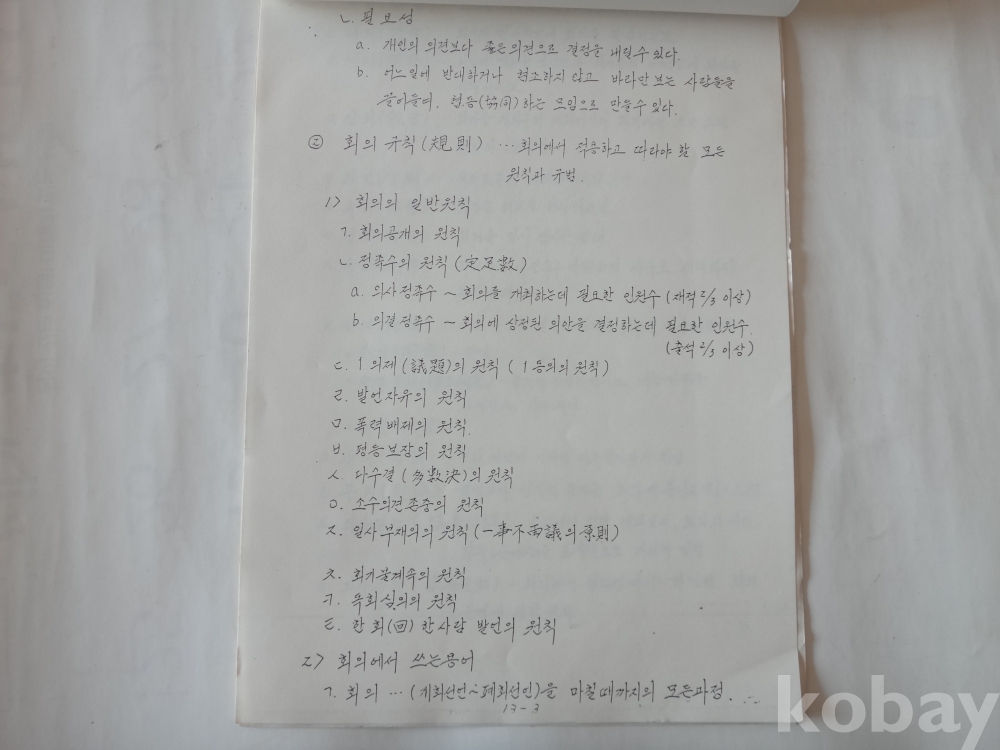 ㄴ. 필요성
a. 개인의 의견보다 좋은 의견으로 결정을 내릴 수 있다.
b. 어느 일에 반대하거나 협조하지 않고 바라만 보는 사람들을
끌어들여, 협동(協同)하는 모임으로 만들 수 있다.
② 회의 규칙(規則) … 회의에서 적응하고 따라야 할 모든
원칙과 규범.
1> 회의의 일반원칙
ㄱ. 회의공개의 원칙
ㄴ. 정족수의 원칙(定足數)
a. 의사정족수 ~ 회의를 개최하는데 필요한 인원수 (재적 2/3 이상)
b. 의결정족수 ~ 회의에 상정된 의안을 결정하는데 필요한 인원수.
(출석 2/3 이상)
ㄷ. 1 의제(議題)의 원칙 (1 동의의 원칙)
ㄹ. 발언자유의 원칙
ㅁ. 폭력배제의 원칙
ㅂ. 평등보장의 원칙
ㅅ. 다수결(多數決)의 원칙
ㅇ. 소수의견존중의 원칙
ㅈ. 일사부재의의 원칙(一事不再議의 原則)
ㅊ. 회기불계속의 원칙
ㅋ. 축회심의의 원칙
ㅌ. 한 회(回) 한사람 발언의 원칙
2> 회의에서 쓰는용어
ㄱ. 회의 … (개회선언~폐회선언)을 마칠때까지의 모든과정.
17-3
kobay